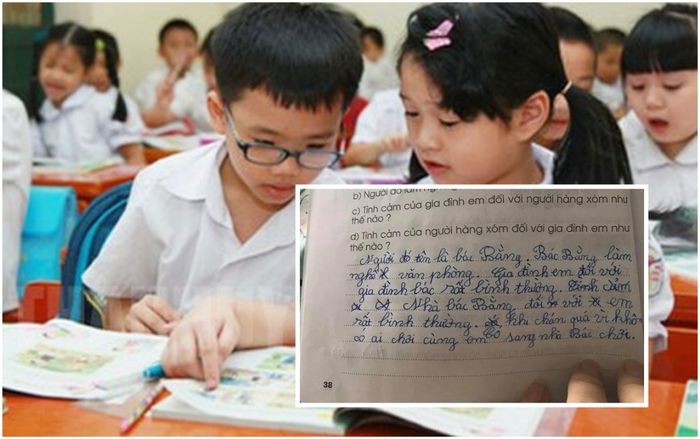 b) Người đó làm
c) Tình cảm của gia đình em đối với người hàng xóm như
thế nào ?
d) Tình cảm của người hàng xóm đối với gia đình em như
thế nào ?
Người đó tên là bác Bằng. Bác Bằng làm
nghề văn phòng. Gia đình em đối với
gia đình bác rất bình thường. Tình cảm
Nhà bác Bằng đối với em
rất bình thường. khi chán quá vì khô
có ai chơi cùng em sang nhà Bác chơi.
38